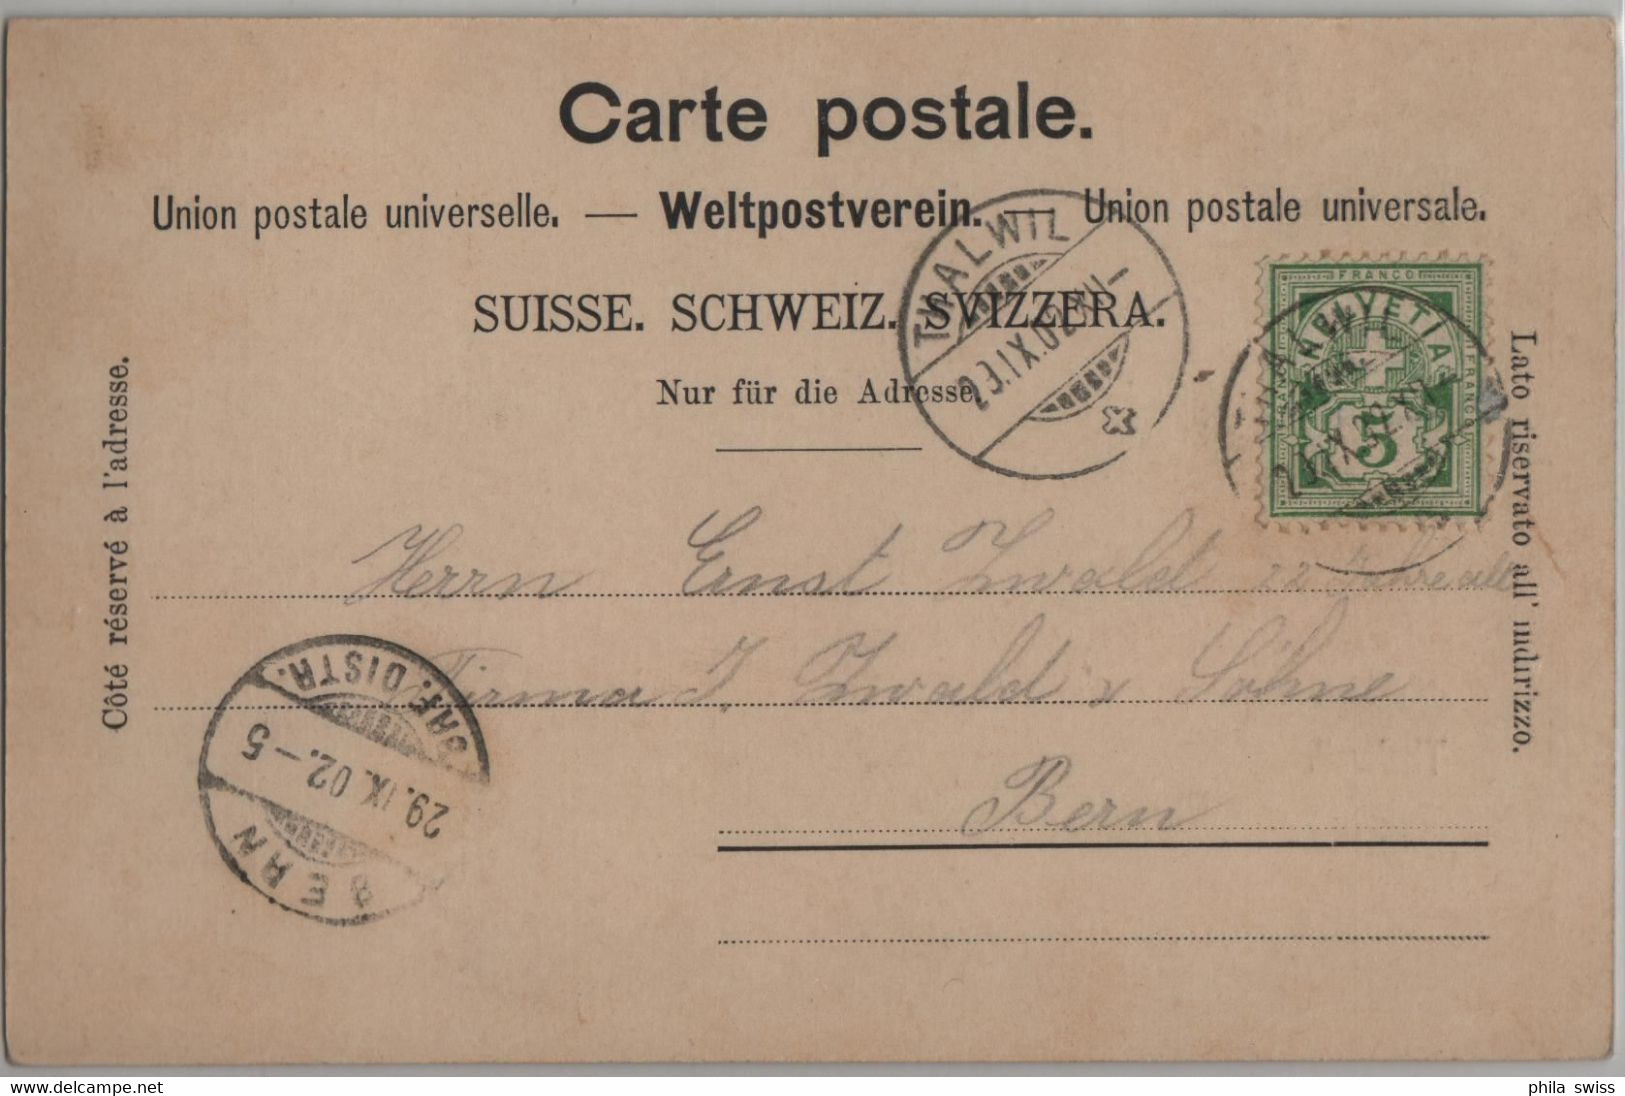 Carte postale.
Union postale universelle. — Weltpostverein. — Union postale universale.
SUISSE. SCHWEIZ. SVIZZERA.
Nur für die Adresse.
Côté réservé à l'adresse.
Lato riservato all' indirizzo.
THALWIL
FRANCO
HELVETIA
FRANCO
FRANCO
5
Herrn Ernst Zwald 22 Jahre alt
Firma J. Zwald & Söhne
Bern
BERN
29.IX.02.–5
BRF. DISTR.
www.delcampe.net
phila swiss